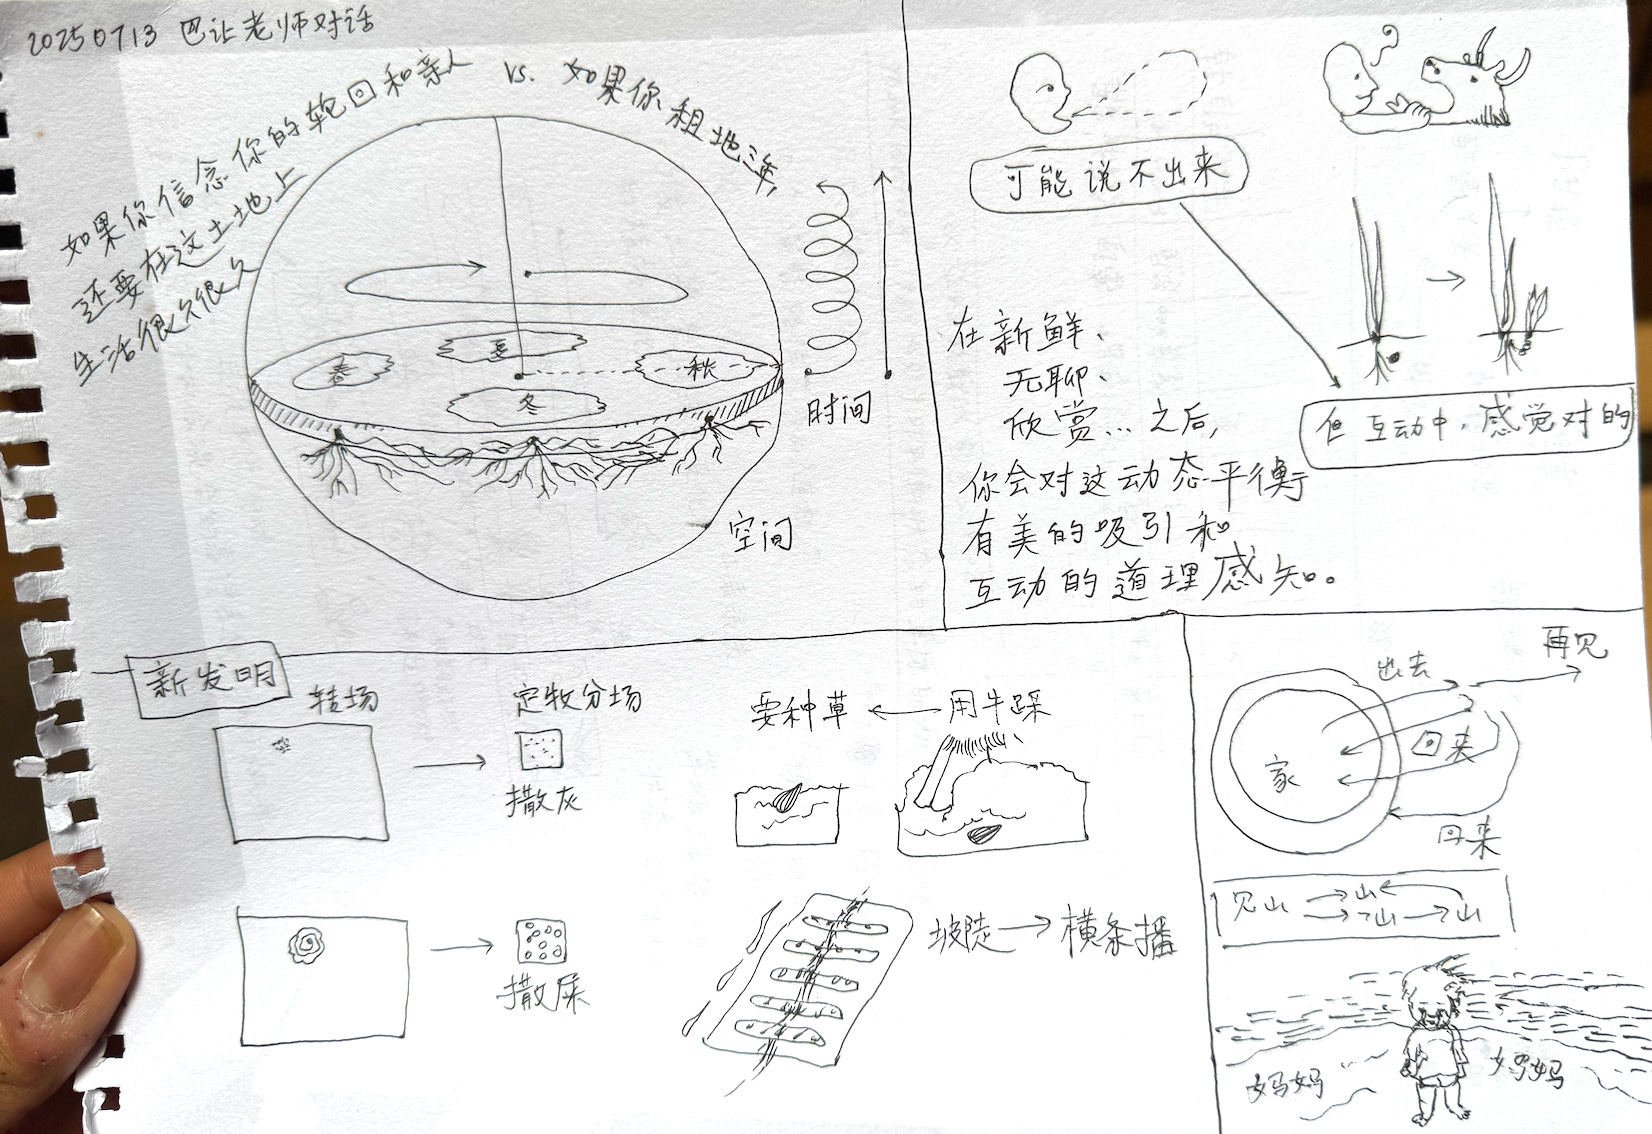 20250713 巴让老师对话
如果你信念你的轮回和亲人
还要在这土地上
生活很久很久
vs. 如果你租地三年
春
夏
秋
冬
时间
空间
可能说不出来
但互动中，感觉对的
在新鲜、
无聊、
欣赏...之后，
你会对这动态平衡
有美的吸引和
互动的道理感知。
新发明
转场
定牧分场
撒灰
撒屎
要种草
用牛踩
坡陡
横条播
出去
再见
回来
回来
家
见山
山
山
山
妈妈
妈妈